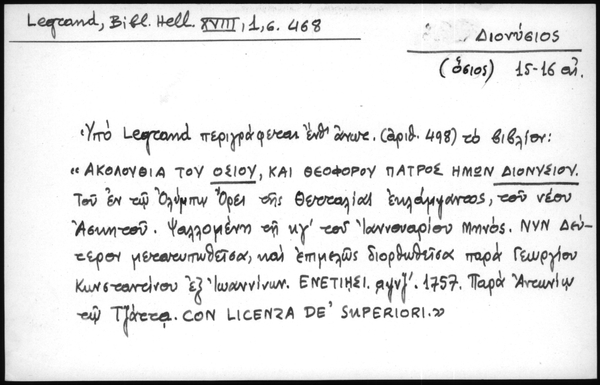 Legrand, Bibl. Hell. XVIII, 1, σ. 468
Διονύσιος
(ὅσιος) 15-16 αἰ.
Ὑπό Legrand περιγράφεται ἔνθ' ἄνωτ. (ἀριθ. 498) τὸ βιβλίον:
« ΑΚΟΛΟΥΘΙΑ ΤΟΥ ΟΣΙΟΥ, ΚΑΙ ΘΕΟΦΟΡΟΥ ΠΑΤΡΟΣ ΗΜΩΝ ΔΙΟΝΥΣΙΟΥ.
Τοῦ ἐν τῷ Ὀλύμπῳ Ὄρει τῆς Θετταλίας ἐκλάμψαντος, τοῦ νέου
Ἀσκητοῦ. Ψαλλομένη τῇ κγ' τοῦ Ἰαννουαρίου Μηνός. ΝΥΝ Δεύ-
τερον μετατυπωθεῖσα, καὶ ἐπιμελῶς διορθωθεῖσα παρά Γεωργίου
Κωνσταντίνου ἐξ Ἰωαννίνων. ΕΝΕΤΙΗΣΙ. αψνζ'. 1757. Παρά Ἀντωνίῳ
τῷ Τζάττᾳ. CON LICENZA DE' SUPERIORI. »